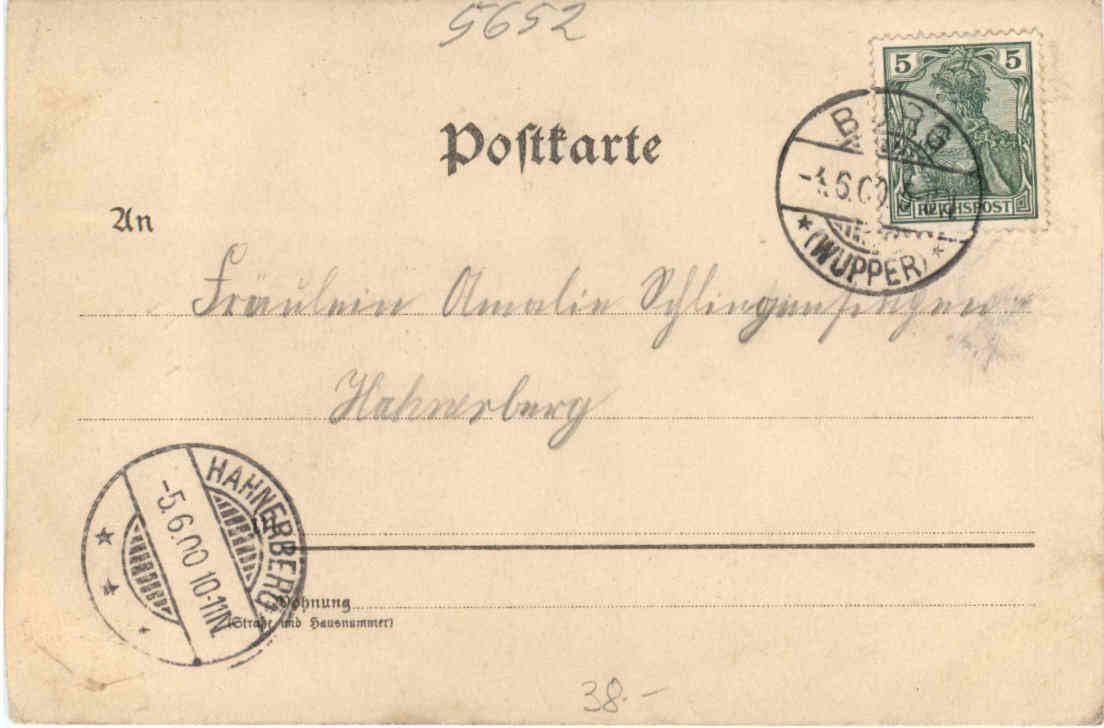 5652
5 5
REICHSPOST
BURG
6.00
(WUPPER)
Postkarte
An
Fräulein Amalie Schlingensiepen
Hahnerberg
HAHNERBERG
-5.6.00 10-11N.
in
Wohnung
(Straße und Hausnummer)
38.-